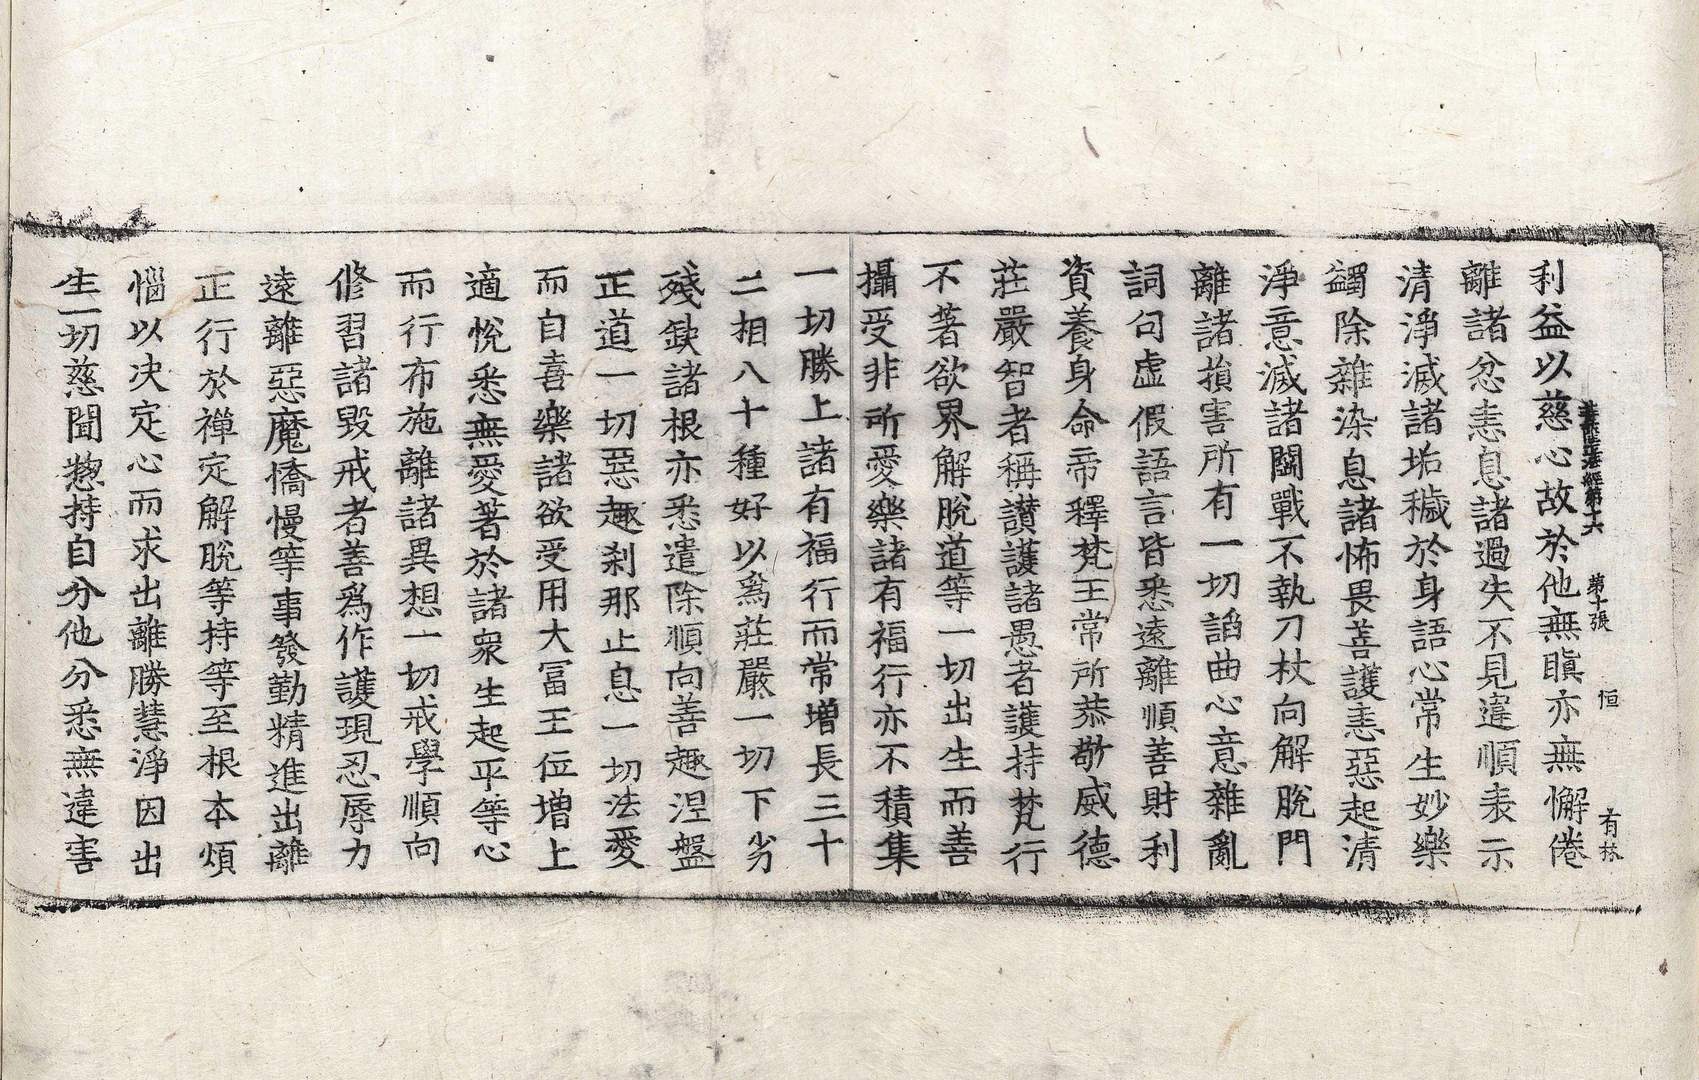 第十六
第十張
恒
有林
利益以慈心故於他無瞋亦無懈倦
離諸忿恚息諸過失不見違順表示
清淨滅諸垢穢於身語心常生妙樂
蠲除雜染息諸怖畏善護恚惡起清
淨意滅諸鬪戰不執刀杖向解脫門
離諸損害所有一切諂曲心意雜亂
詞句虛假語言皆悉遠離順善財利
資養身命帝釋梵王常所恭敬威德
莊嚴智者稱讚護諸愚者護持梵行
不著欲界解脫道等一切出生而善
攝受非所愛樂諸有福行亦不積集
一切勝上諸有福行而常增長三十
二相八十種好以爲莊嚴一切下劣
殘缺諸根亦悉遣除順向善趣涅盤
正道一切惡趣刹那止息一切法愛
而自喜樂諸欲受用大冨王位增上
適悅悉無愛著於諸衆生起平等心
而行布施離諸異想一切戒學順向
修習諸毀戒者善爲作護現忍辱力
遠離惡魔憍慢等事發勤精進出離
正行於禪定解脫等持等至根本煩
惱以決定心而求出離勝慧淨因出
生一切慈聞惣持自分他分悉無違害